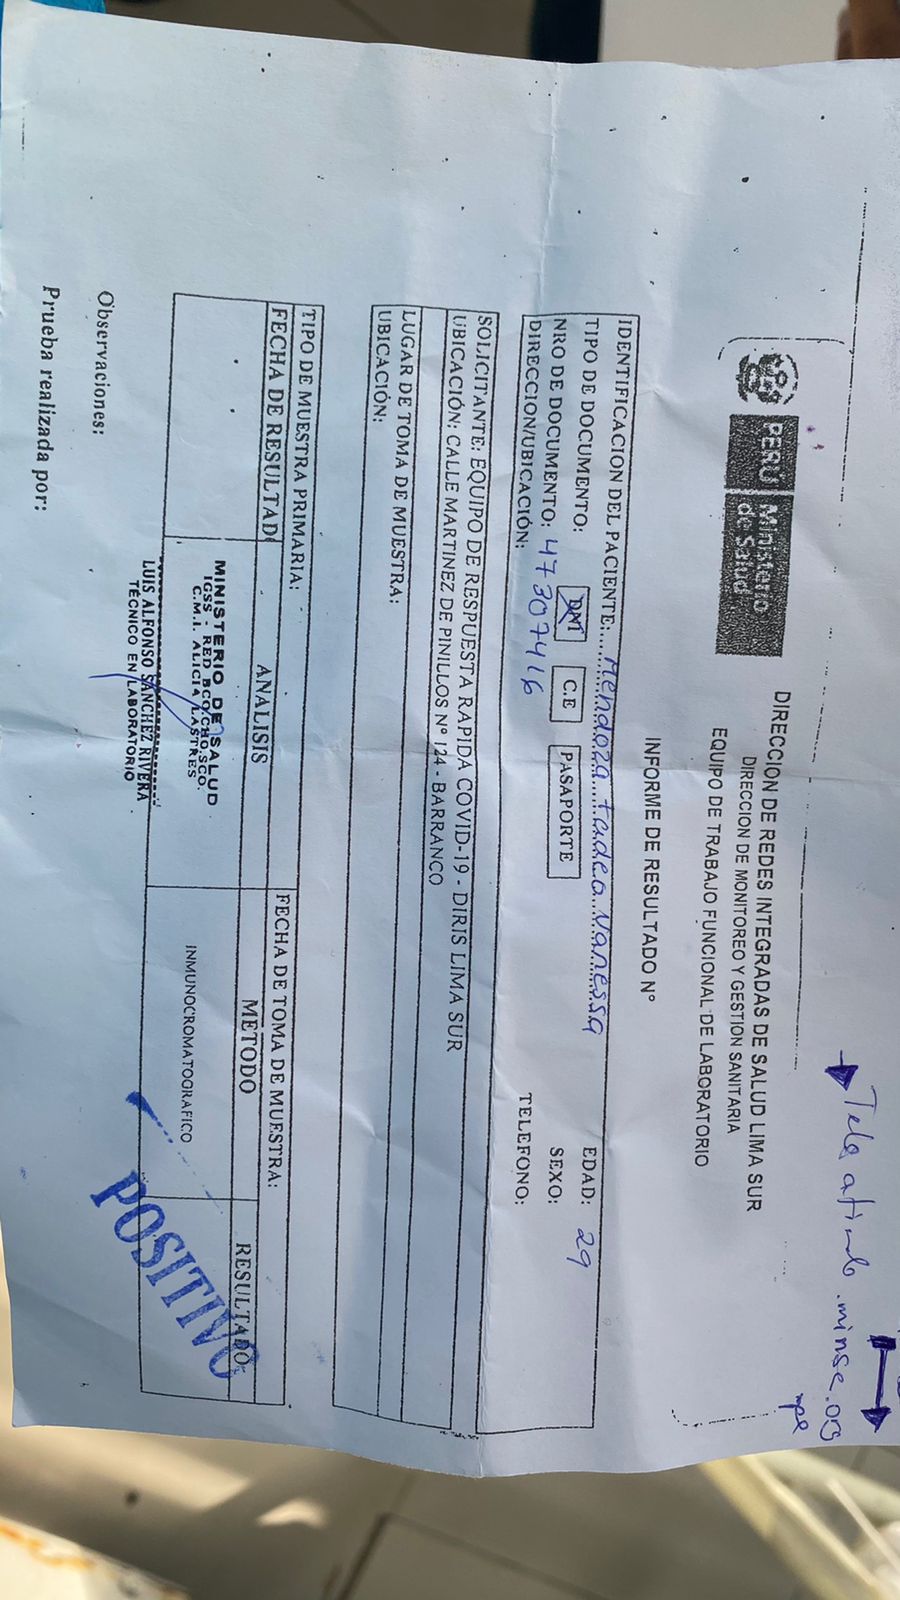 Tele atiendo.minsa.og
mpe
PERÚ Ministerio
de Salud
DIRECCION DE REDES INTEGRADAS DE SALUD LIMA SUR
DIRECCION DE MONITOREO Y GESTION SANITARIA
EQUIPO DE TRABAJO FUNCIONAL DE LABORATORIO
INFORME DE RESULTADO N°
IDENTIFICACION DEL PACIENTE: Mendoza tadeo Vanessa EDAD: 29
TIPO DE DOCUMENTO: DNI C.E PASAPORTE SEXO:
NRO DE DOCUMENTO: 47307416
DIRECCION/UBICACIÓN: TELEFONO:
SOLICITANTE: EQUIPO DE RESPUESTA RAPIDA COVID-19 - DIRIS LIMA SUR
UBICACIÓN: CALLE MARTINEZ DE PINILLOS N° 124 - BARRANCO
LUGAR DE TOMA DE MUESTRA:
UBICACIÓN:
TIPO DE MUESTRA PRIMARIA: FECHA DE TOMA DE MUESTRA:
FECHA DE RESULTAD ANALISIS METODO RESULTADO
MINISTERIO DE SALUD
IGSS - RED BCO.CHO.SCO.
C.M.I. ALICIA LASTRES
INMUNOCROMATOGRAFICO
POSITIVO
LUIS ALFONSO SANCHEZ RIVERA
TÉCNICO EN LABORATORIO
Observaciones:
Prueba realizada por: